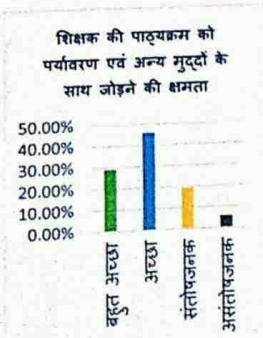 शिक्षक की पाठ्यक्रम को
पर्यावरण एवं अन्य मुद्दों के
साथ जोड़ने की क्षमता
50.00%
40.00%
30.00%
20.00%
10.00%
0.00%
बहुत अच्छा
अच्छा
संतोषजनक
असंतोषजनक